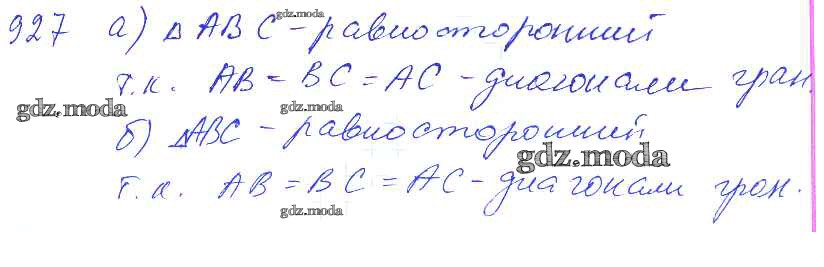 927 а) Δ ABC - равносторонний
gdz.moda
т.к. AB = BC = AC - диагонали гран.
gdz.moda
gdz.moda
б) ΔABC - равносторонний
gdz.moda
т.к. AB = BC = AC - диагонали гран.
gdz.moda